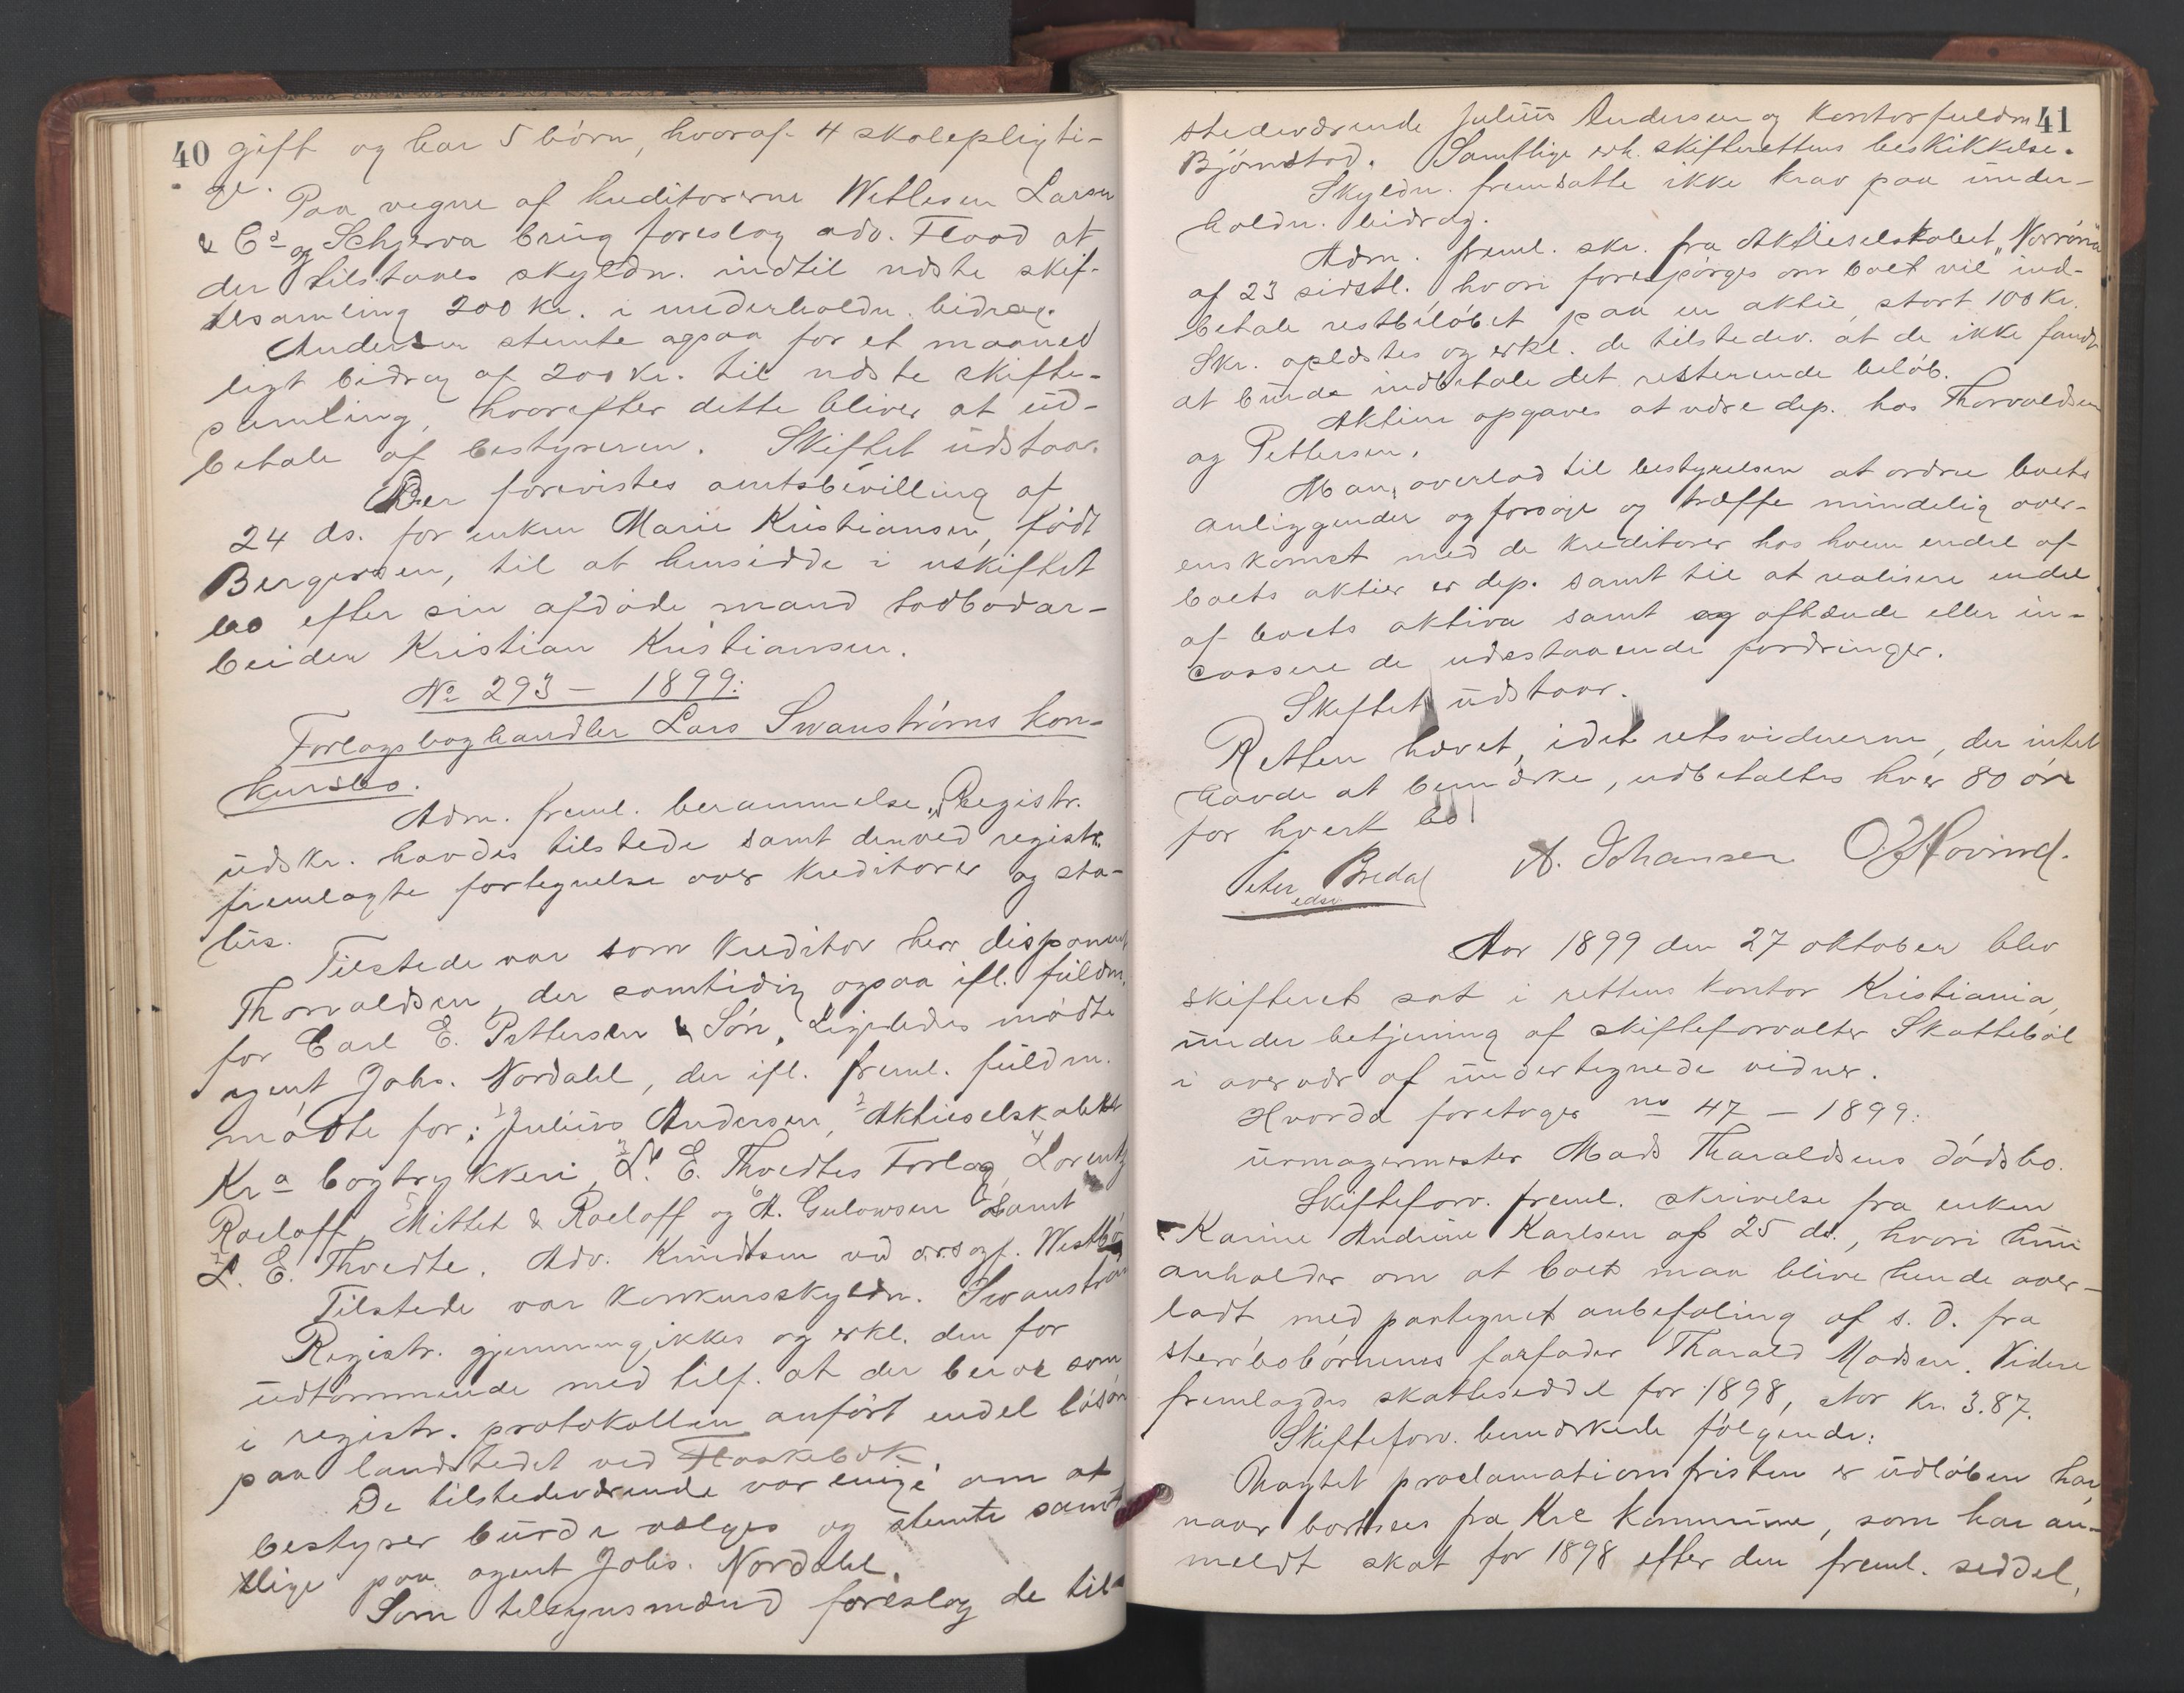 40
gift og har 5 børn, hvoraf 4 skolepligti-
ge.
Paa vegne af kreditorerne Wetlesen Larsen
& Co og Schjerva brug foreslog adv. Flood at
der tilstaaes skyldn. indtil næste skif-
tesamling 200 kr. i underholdn. bidrag.
Andersen stemte ogsaa for et maaned
ligt bidrag af 200 kr. til næste skifte-
samling, hvorefter dette bliver at ud-
betale af bestyreren. Skiftet udstaar.
Der forevistes amtsbevilling af
24 ds. for enken Marie Kristiansen, født
Bergersen, til at hensidde i uskiftet
bo efter sin afdøde mand todbodar-
beider Kristian Kristiansen.
No 293 - 1899:
Forlagsboghandler Lars Swanstrøms kon-
kursbo.
Adm. freml. berammelse. Registr.
udskr. havdes tilstede samt den ved registr.
fremlagte fortegnelse over kreditorer og sta-
tus.
Tilstede var som kreditor herr disponent
Thorvaldsen, der samtidig ogsaa ifl. fuldm.
for Carl E. Pettersen & Søn. Ligeledes mødte
agent Johs. Nordahl, der ifl. freml. fuldm.
mødte for: 1 Julius Andersen, 2 Aktieselskabet
Kra bogtrykkeri, 3 L. E. Thvedtes Forlag, 4 Lorentz
Roeloff, 5 Mittet & Roeloff og 6 A. Gulowsen samt
7 L. E. Thvedte. Adv. Knudtsen ved orsagf. Westbø
Tilstede var konkursskyldn. Swanstrøm
Registr. gjennemgikkes og erkl. den for
udtømmende med tilf. at der beror som
i registr. protokollen anført endel løsøre
paa landstedet ved Flaskebæk.
De tilstedeværende var enige om at
bestyrer burde vælges og stemte samt
tlige paa agent Johs. Nordahl.
Som tilsynsmænd foreslog de til-
41
stedeværende Julius Andersen og kontorfuldm
Bjørnstad. Samtlige erh. skifterettens beskikkelse.
Skyldn. fremsatte ikke krav paa under-
holdn. bidrag.
Adm. freml. skr. fra Aktieselskabet "Norrøna"
af 23 sidstl. hvori forespørges om boet vil ind-
betale restbeløbet paa en aktie, stort 100 kr.
Skr. oplæstes og erkl. de tilstedev. at de ikke fandt
at burde indbetale det resterende beløb.
Aktien opgaves at være dep. hos Thorvaldsen
og Pettersen.
Man overlod til bestyrelsen at ordne boets
anliggender og forsøge og træffe mindelig over-
enskomst med de kreditorer hos hvem endel af
boets aktier er dep. samt til at realisere endel
af boets aktiva samt og afhænde eller in-
cassere de udestaaende fordringer.
Skiftet udstaar.
Retten hævet, idet retsvidnerne, der intet
havde at bemærke, udbetaltes hver 80 øre
for hvert bo
Peter Bredal
edsv
A. Johansen O. Hovind.
Aar 1899 den 27 oktober blev
skifteret sat i rettens kontor Kristiania,
under betjening af skifteforvalter Skattebøl
i overvær af undertegnede vidner.
Hvorda foretoges no 47 - 1899:
urmagermester Mads Tharaldsens dødsbo.
Skifteforv. freml. skrivelse fra enken
Karine Andrine Karlsen af 25 ds., hvori hun
anholder om at boet maa blive hende over-
ladt med paategnet anbefaling af s. d. fra
stervbobørnenes farfader Tharald Madsen. Videre
fremlagdes skatteseddel for 1898, stor kr. 3.87.
Skifteforv. bemærkede følgende:
Uagtet proclamationsfristen er udløben har,
naar bortsees fra Kra kommune, som har an-
meldt skat for 1898 efter den freml. seddel,